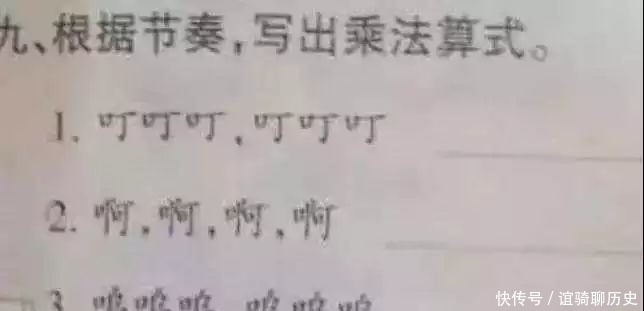 九、根据节奏,写出乘法算式。
1. 叮叮叮,叮叮叮
2. 啊,啊,啊,啊
3
快传号/谊骑聊历史